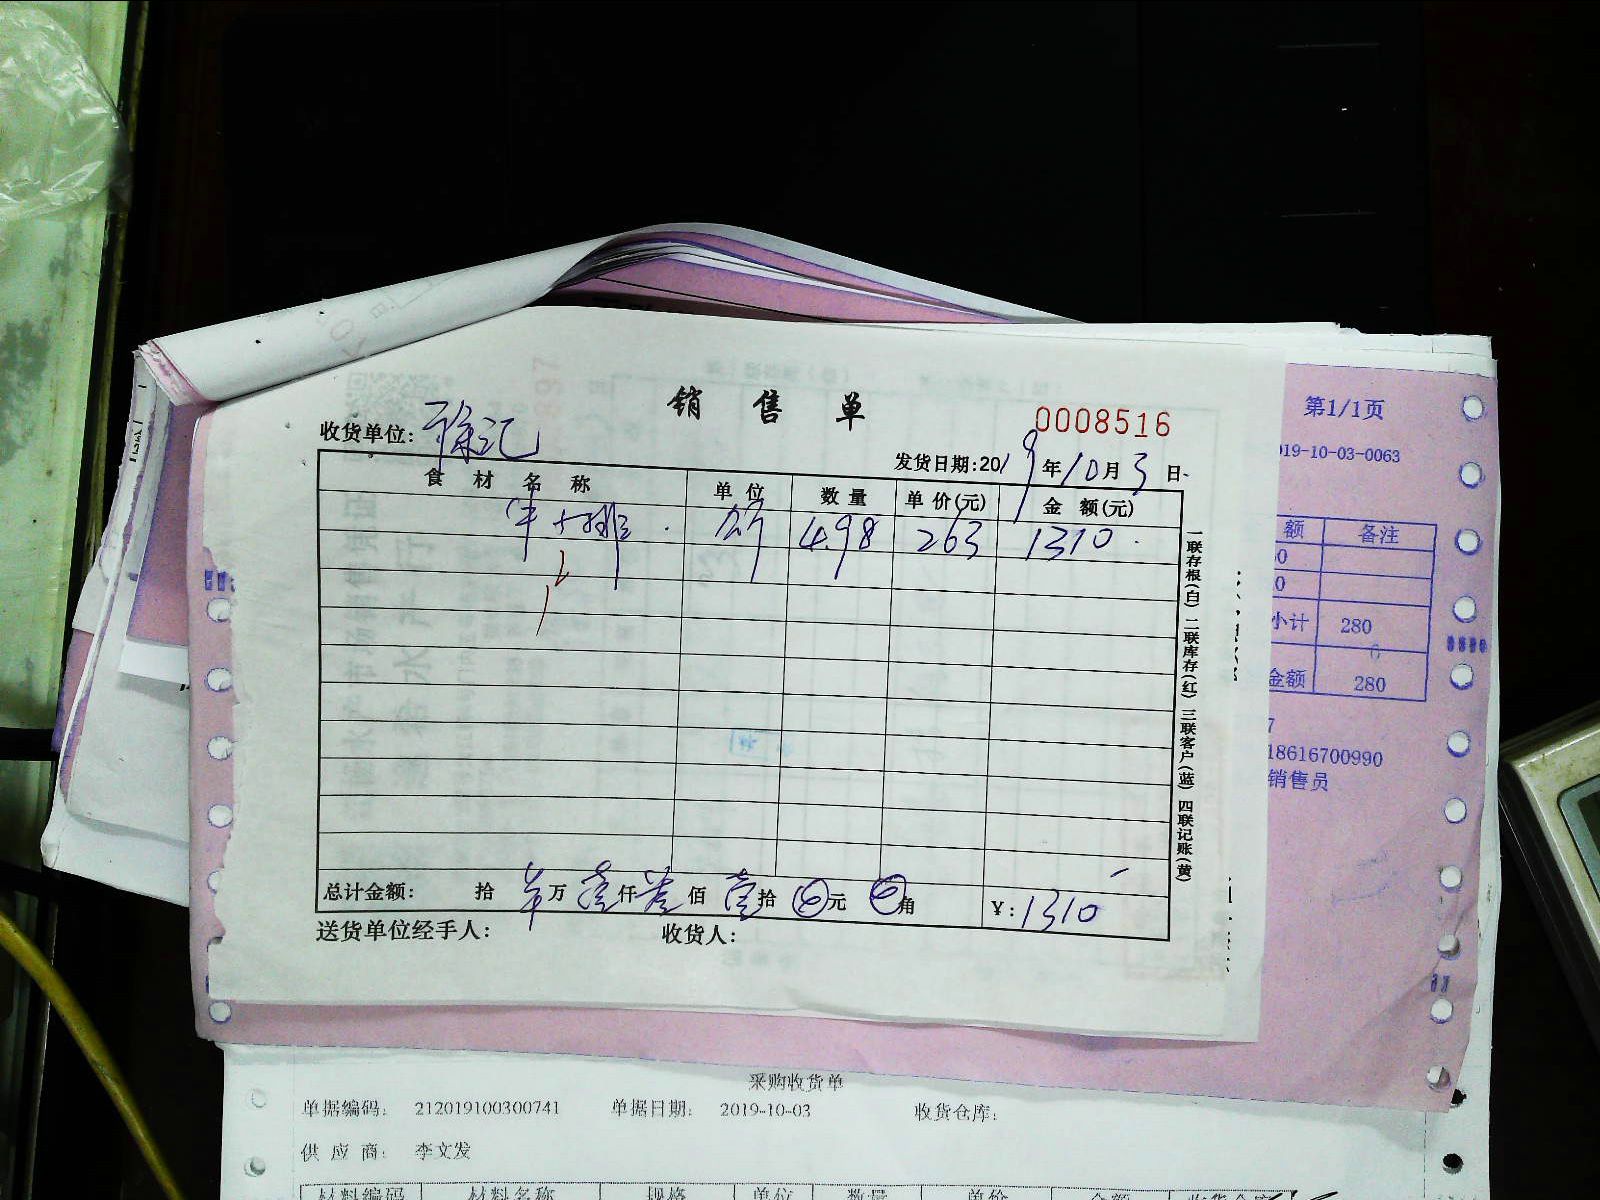 销售单
0008516
收货单位: 徐汇
发货日期:2019年10月3日
食材名称 单位 数量 单价(元) 金额(元)
牛大排 斤 4.98 263 1310
一联存根(白) 二联库存(红) 三联客户(蓝) 四联记账(黄)
总计金额: 拾 万 壹仟叁佰壹拾0元0角 ¥:1310
送货单位经手人: 收货人:
第1/1页
019-10-03-0063
额 备注
0
0
小计 280
金额 280
7
18616700990
销售员
采购收货单
单据编码: 212019100300741 单据日期: 2019-10-03 收货仓库:
供应商: 李文发
材料编码 材料名称 规格 单位 数量 单价 金额